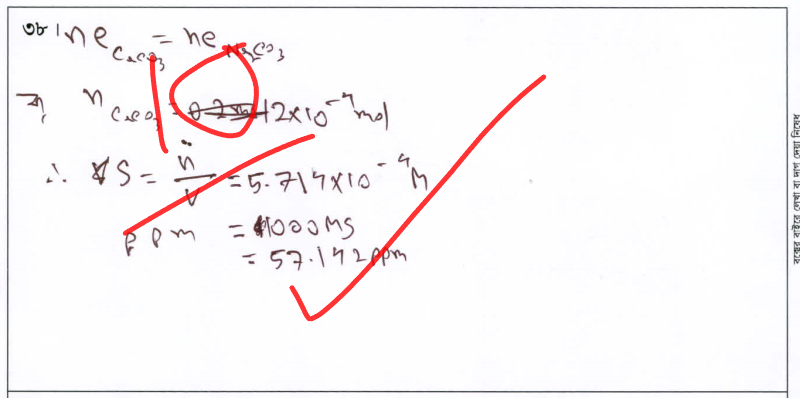 ৩৮। ne CaCO3 = ne Na2CO3
বা, n CaCO3 = 2×10⁻⁴ mol
∴ S = n/V = 5.714×10⁻⁴ M
ppm = 1000MS
= 57.142 ppm
বক্সের বাইরে লেখা বা দাগ দেয়া নিষেধ